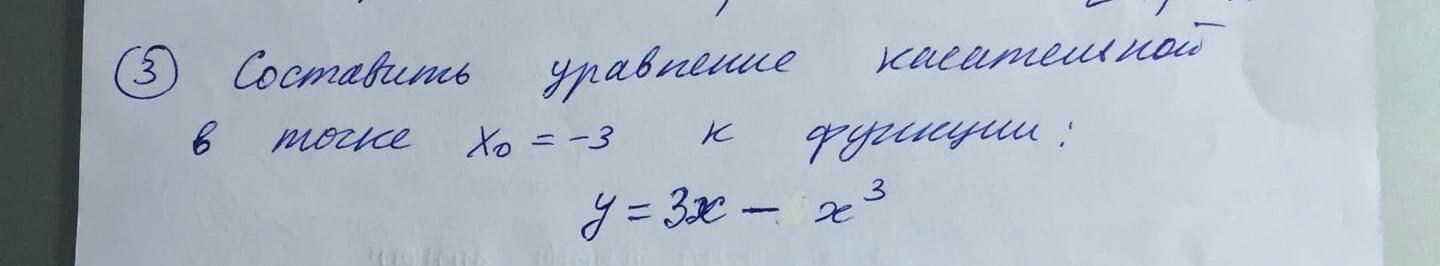 ③ Составить уравнение касательной
в точке x₀ = -3 к функции:
y = 3x - x³